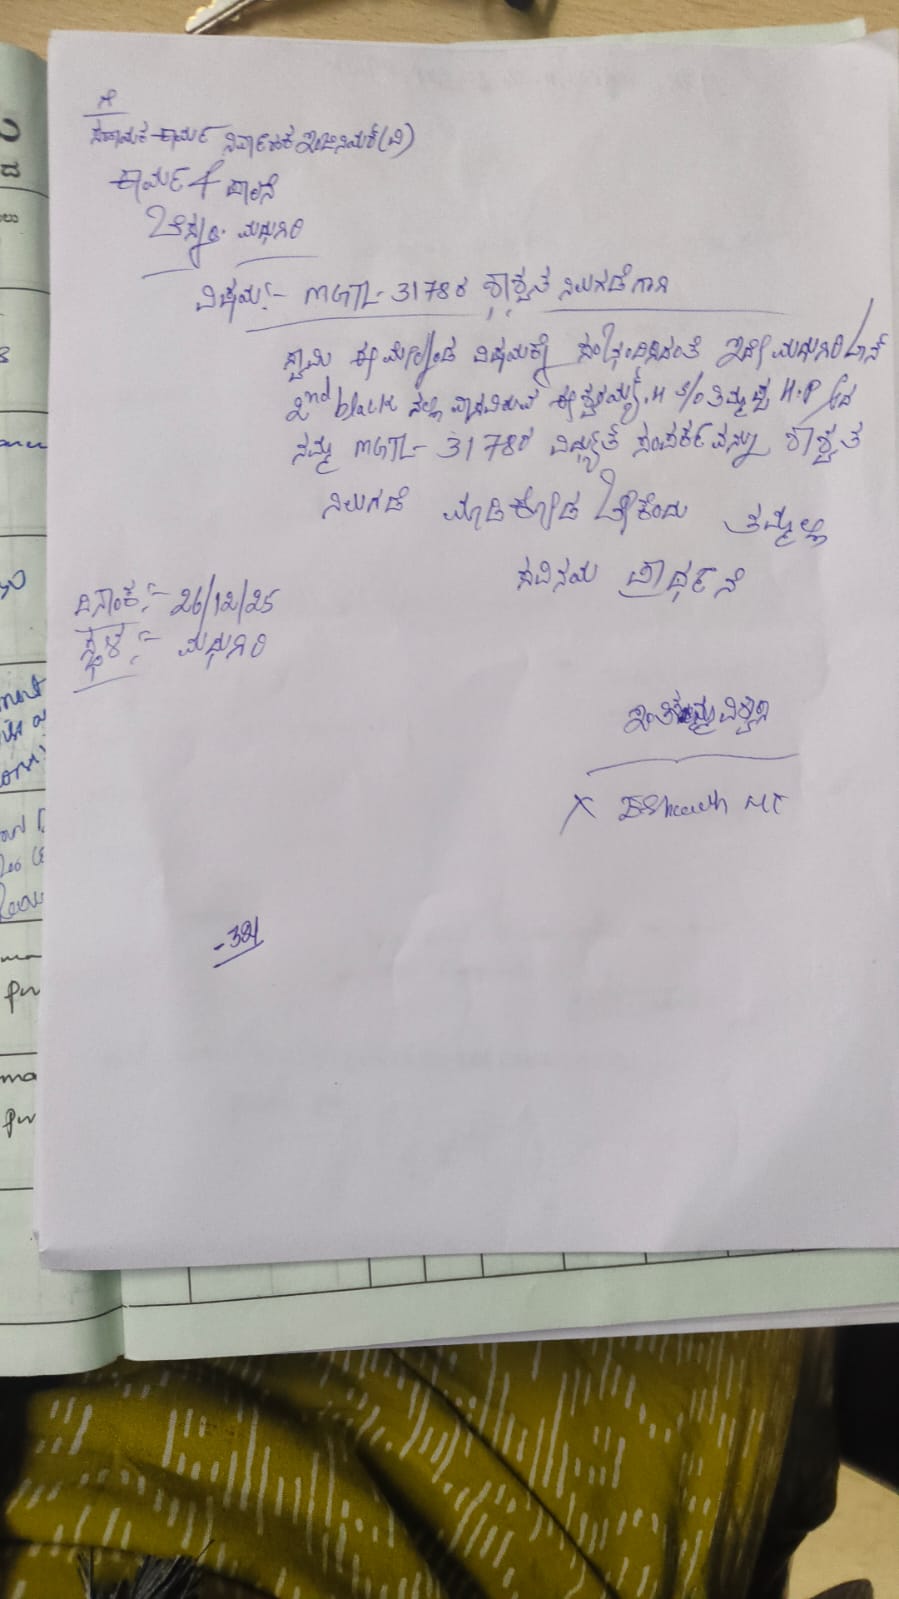 ಗೆ
ಸಹಾಯಕ ಕಾರ್ಯ ನಿರ್ವಾಹಕ ಇಂಜಿನಿಯರ್ (ವಿ)
ಕಾರ್ಯ & ಪಾಲನೆ
ಬೆಸ್ಕಾಂ. ಮಧುಗಿರಿ
ವಿಷಯ:- MGTL-31788 ಶಾಶ್ವತ ನಿಲುಗಡೆಗಾಗಿ
ಸ್ವಾಮಿ ಈ ಮೇಲ್ಕಂಡ ವಿಷಯಕ್ಕೆ ಸಂಬಂದಿಸಿದಂತೆ ಇದೇ ಮಧುಗಿರಿ ಟೌನ್
2nd black ನಲ್ಲಿ ವಾಸವಿರುವ ಈಶ್ವರಯ್ಯ.H S/O ತಿಮ್ಮಪ್ಪ H.P ಆದ
ನಮ್ಮ MGTL-31788 ವಿದ್ಯುತ್ ಸಂಪರ್ಕವನ್ನು ಶಾಶ್ವತ
ನಿಲುಗಡೆ ಮಾಡಿಕೊಡಬೇಕೆಂದು ತಮ್ಮಲ್ಲಿ
ಸವಿನಯ ಪ್ರಾರ್ಥನೆ
ದಿನಾಂಕ:- 26/12/25
ಸ್ಥಳ:- ಮಧುಗಿರಿ
ಇಂತಿ ನಮ್ಮ ವಿಶ್ವಾಸಿ
X